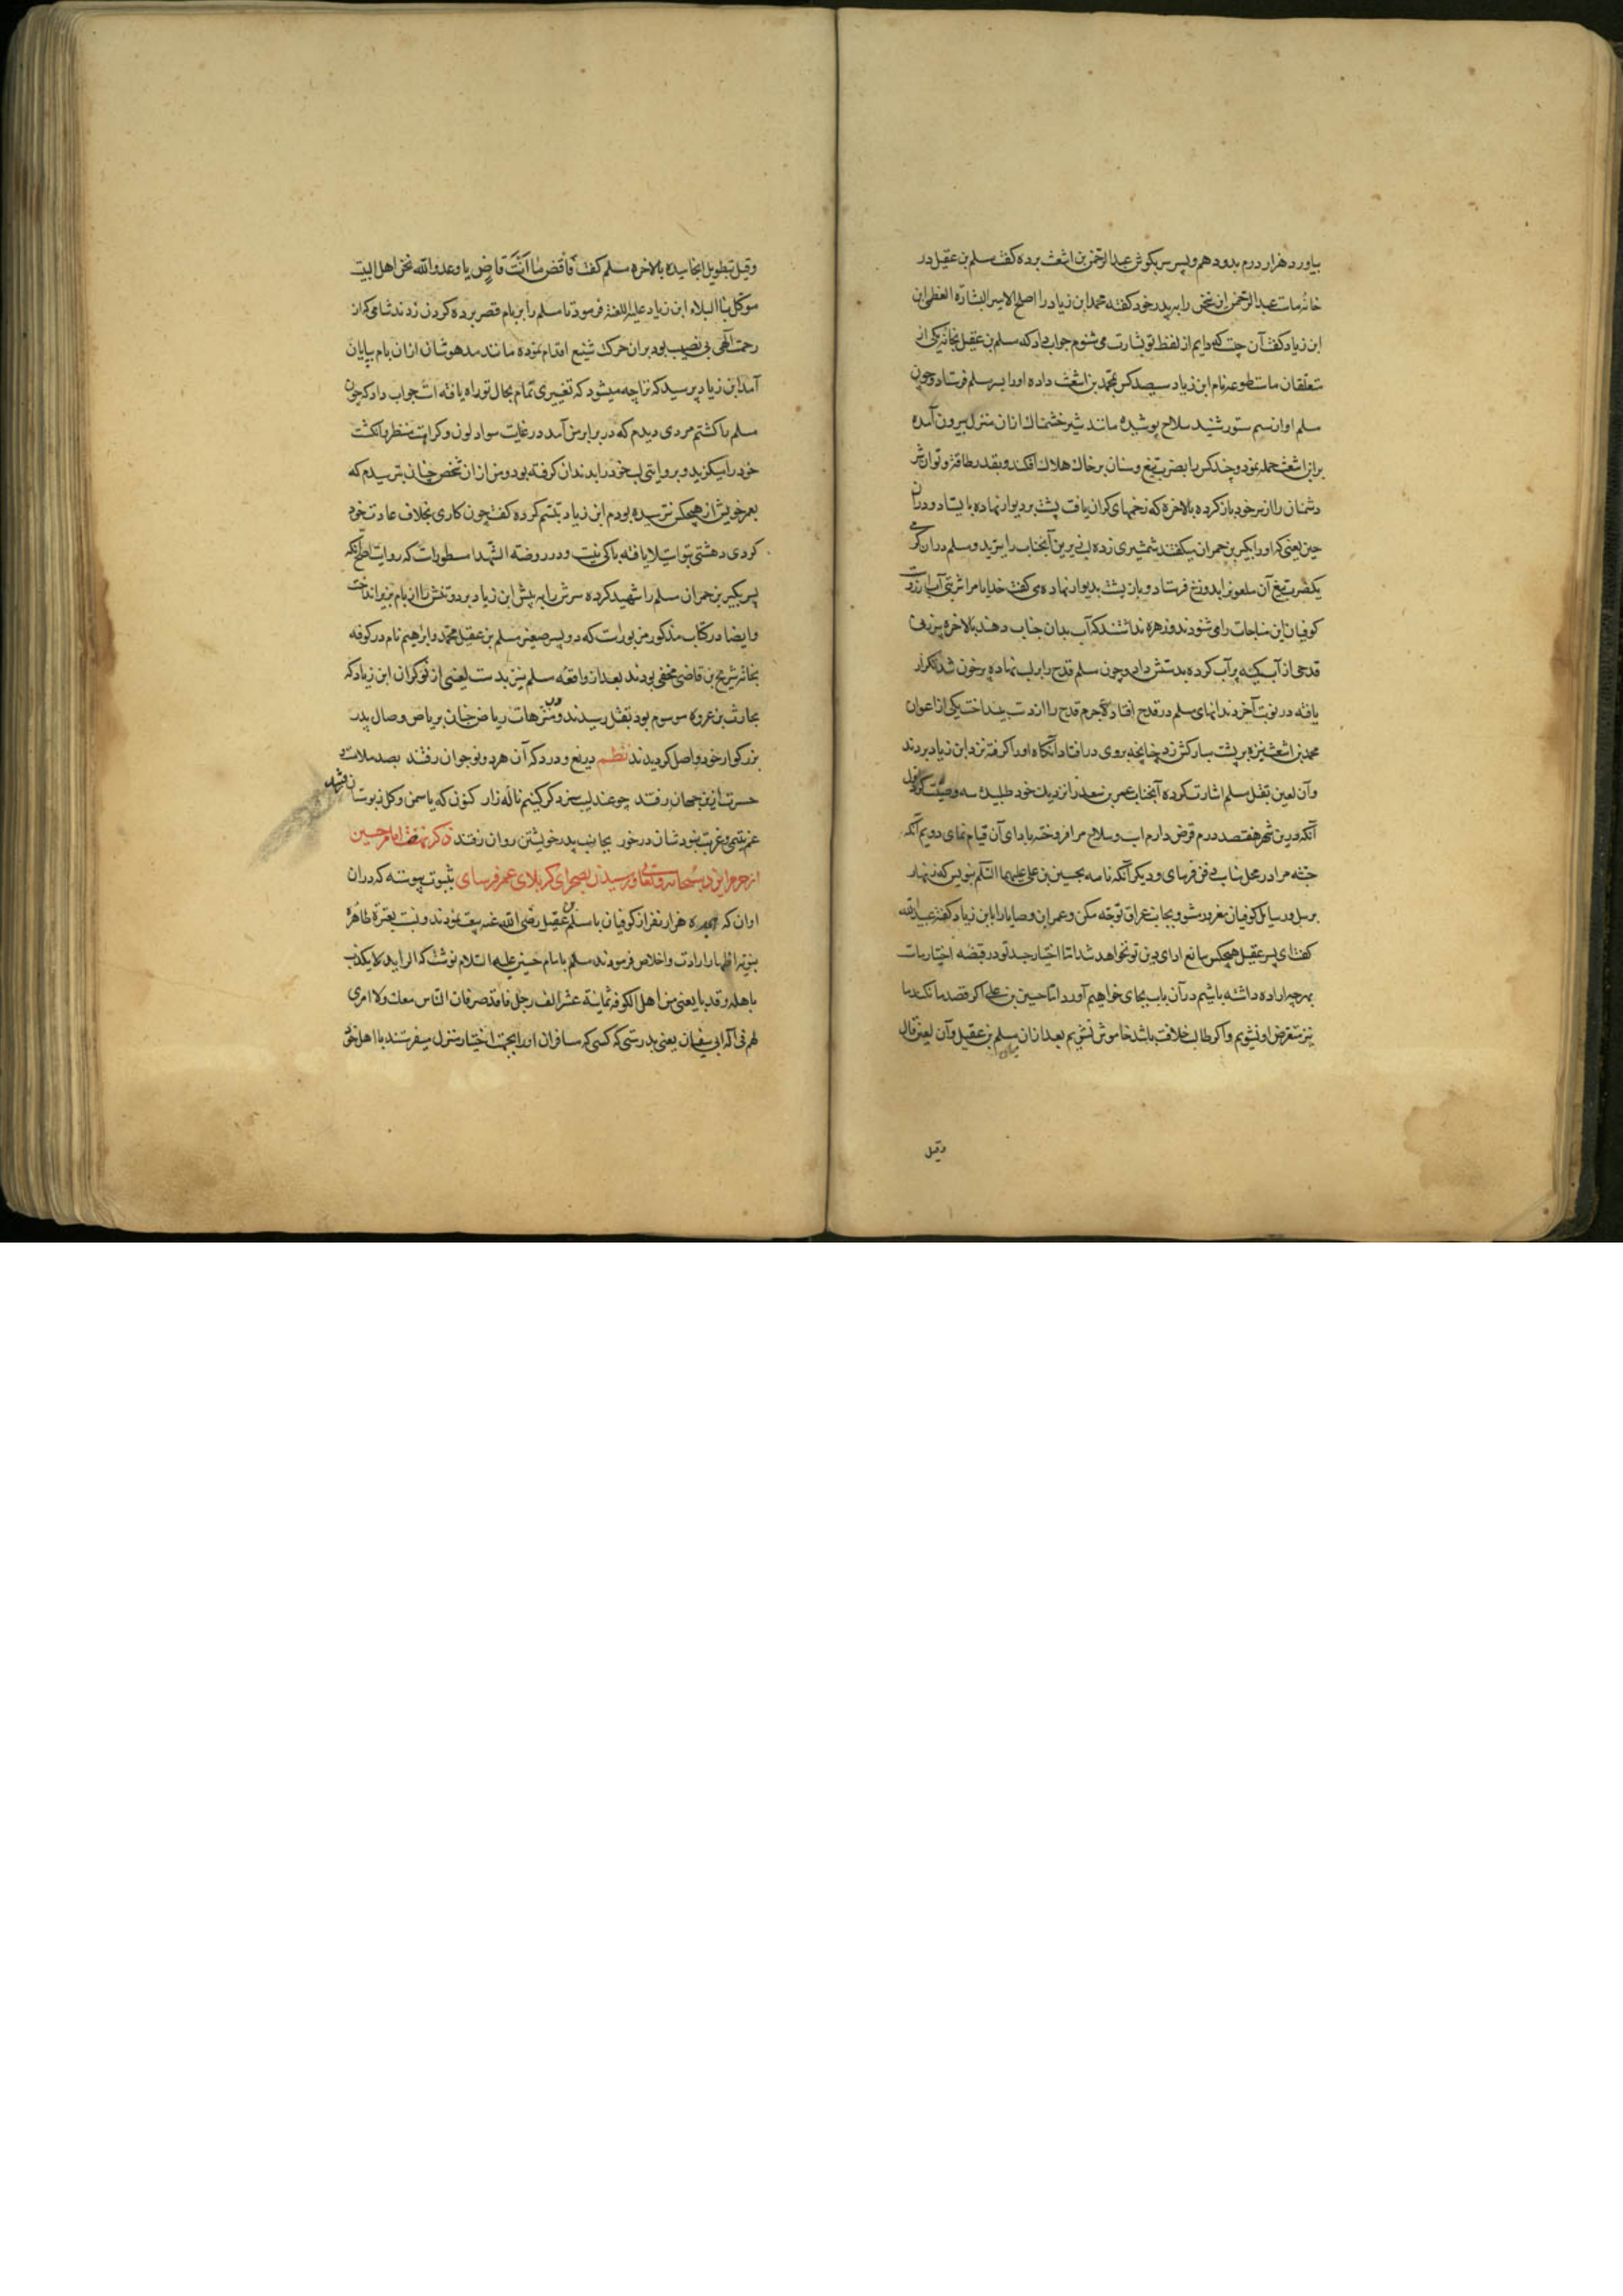 بیاورد هزار درم بدو دهم و پسر سر بگوش عبدالرحمن بن اشعث برده گفت مسلم بن عقیل در
خانه ماست عبدالرحمن این سخن را به پدر خود گفته محمد ابن زیاد را اصلح الامیر البشارة العظمی ابن
ابن زیاد گفت آن چیست که دایم از لفظ تو بشارت می شنوم جواب داد که مسلم بن عقیل بخانه یکی از
متعلقان ماست ابن زیاد سیصد کس بمحمد بن اشعث داده او را بسر مسلم فرستاد و چون
مسلم سلاح پوشیده مانند شیر خشمناک از ان منزل بیرون آمده
بر ابن اشعث حمله نمود و چند کس را بضرب تیغ و سنان بر خاک هلاک افکند و بقدر طاقة و توانش
دشمنان را از سر خود باز کرده بالاخره که زخمهای گران یافت پشت بر دیوار نهاده بایستاد و در ان
حین لعینی که او را بکیر بن حمران میگفتند شمشیری زده لب زیرین آنجناب را ببرید و مسلم در ان گرمی
یکضرب تیغ آن ملعونرا بدوزخ فرستاد و باز پشت بدیوار نهاده می گفت خدایا مرا شربتی آب ارزوست
کوفیان این مناجات را می شنودند و زهره نداشتند که آب بدان جناب دهند بالاخره پیرزنی
قدحی از آبگینه پر آب کرده بدستش داد و چون مسلم قدح را بر لب نهاده پر خون شد تکرار
یافته در نوبت آخر دندانهای مسلم در قدح افتاد لاجرم قدح را از دست بینداخت یکی از اعوان
محمد بن اشعث نیزه بر پشت مبارکش زد چنانچه بروی در افتاد آنگاه او را گرفته نزد ابن زیاد بردند
وآن لعین بقتل مسلم اشارت کرده آنجناب عمر بن سعد را نزدیک خود طلبیده سه وصیت کرد اول
آنکه درین شهر هفتصد درم قرض دارم اسب و سلاح مرا فروخته بادای آن قیام نمای دویم آنکه
جثه مرا در محل مناسب دفن فرمای و دیگر آنکه نامه بحسین بن علی علیهما السلام بنویس که زنهار
برسل و رسایل کوفیان مغرور مشو و بجانب عراق توجه مکن و عمر این وصایا را با ابن زیاد گفته عبیدالله
گفت ای پسر عقیل هیچکس مانع ادای دین تو نخواهد شد اما اختیار جسد تو در قبضه اختیار ماست
بهر چه اراده داشته باشیم در آن باب بجای خواهیم آورد اما حسین بن علی اگر قصد ما نکند ما
نیز متعرض او نشویم و اگر طالب خلافت باشد خاموش نشویم بعد از ان میان مسلم بن عقیل و آن لعین قال
وقیل
وقیل بتطویل انجامیده بالاخره مسلم گفت فاقض ما انت قاض یا عدو الله نحن اهل البیت
موکل بنا البلاء ابن زیاد علیه اللعنة فرمود تا مسلم را بر بام قصر برده گردن زدند شامی که از
رحمت الهی بی نصیب بود بران حرکت شنیع اقدام نموده مانند مدهوشان از ان بام بپایان
آمد ابن زیاد پرسید که ترا چه میشود که تغییری تمام بحال تو راه یافته است جواب داد که چون
مسلم را کشتم مردی دیدم که در برابر من آمد در غایت سواد لون و کراهت منظر و انگشت
خود را میگزید و بروایتی لب خود را بدندان گرفته بود و من از ان شخص چنان بترسیدم که
بعمر خویش از هیچکس نترسیده بودم ابن زیاد تبسم کرده گفت چون کاری بخلاف عادت خود
کردی دهشتی بتو استیلا یافته باکی نیست و در روضه الشهدا مسطورات که روایت اصح آنکه
پسر بکیر بن حمران مسلم را شهید کرده سرش را به پیش ابن زیاد برد و تنش را از بام بزیر انداخت
و ایضا در کتاب مذکور مزبورات که دو پسر صغیر مسلم بن عقیل محمد و ابراهیم نام در کوفه
بخانه شریح بن قاضی مخفی بودند بعد از واقعه مسلم نیز بدست لعینی از نوکران ابن زیاد که
بحارث بن عروه موسوم بود بقتل رسیدند و در منتزهات ریاض جنان بریاض وصال پدر
بزرگوار خود واصل گردیدند نظم دریغ و درد که آن هر دو نوجوان رفتند بصد ملامت و
حسرت ازین جهان رفتند چو عندلیب سزد گر کنیم ناله زار کنون که یاسمن و گل ز بوستان رفتند
غم یتیمی و غربت نبود شان در خور بجانب پدر خویشتن روان رفتند ذکر نهضت امام حسین
از حرم ایزد سبحانه و تعالی و رسیدن بصحرای کربلای عمر فرسای بثبوت پیوسته که در ان
اوان که هزار نفر از کوفیان با مسلم بن عقیل رضی الله عنه بیعت نمودند و نسبت بعترة طاهرة
نبویه اظهار ارادت و اخلاص فرمودند مسلم بامام حسین علیه السلام نوشت که الراید لا یکذب
باهله و قد بایعنی من اهل الکوفه ثمانیة عشر الف رجل فاقدم فان الناس معک ولا امری
لهم فی آل ابی سفیان یعنی بدرستی که کسی که مسافران او را بجهت اختیار منزل میفرستند با اهل خود